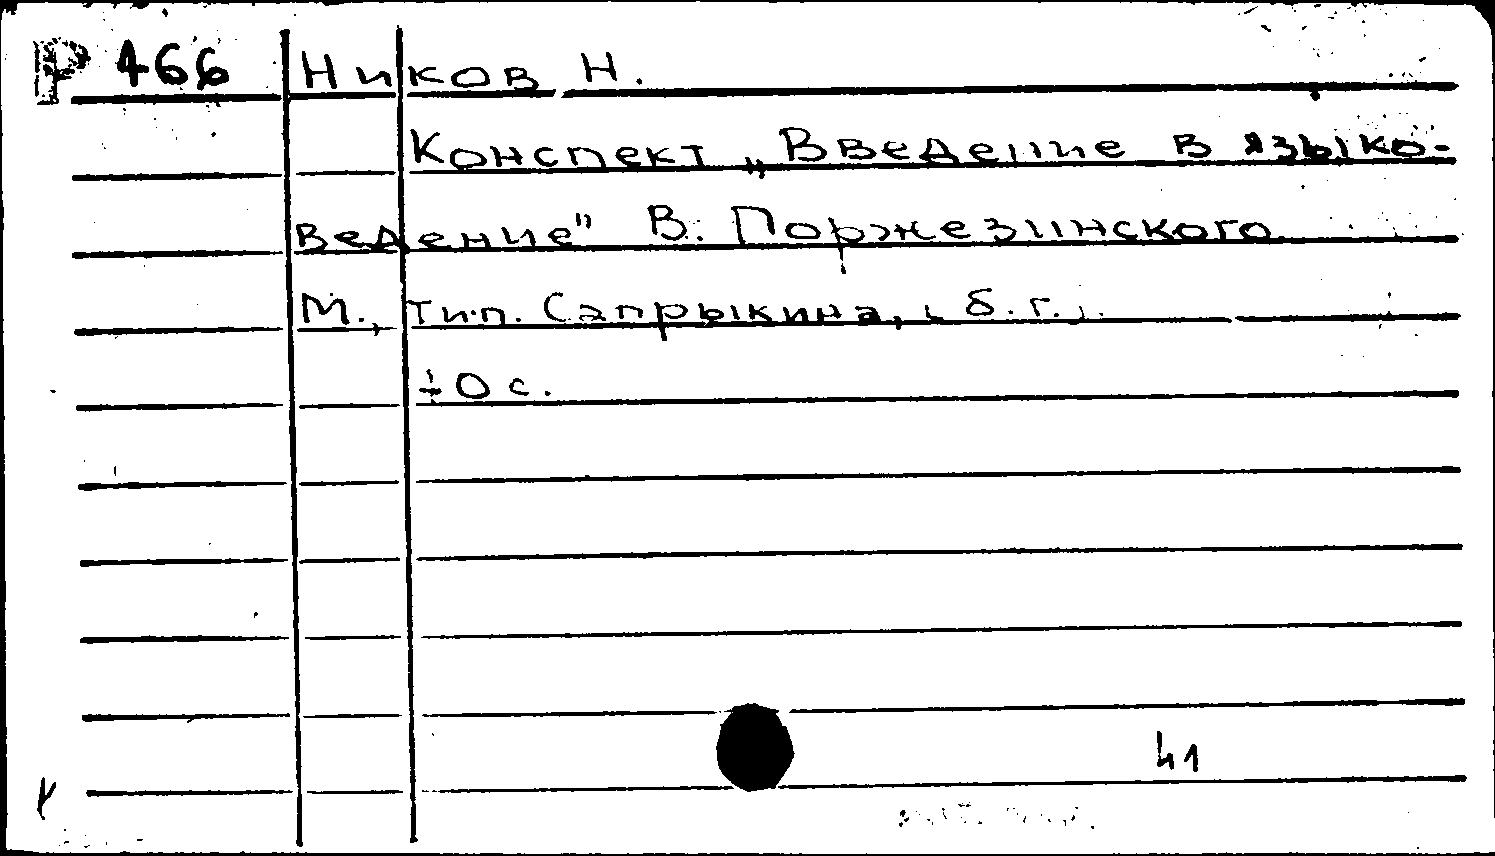 Р 466 Ников Н.
Конспект „Введение в языко-
ведение" В. Поржезинского
М., тип. Сапрыкина, б.г.
40 с.
41